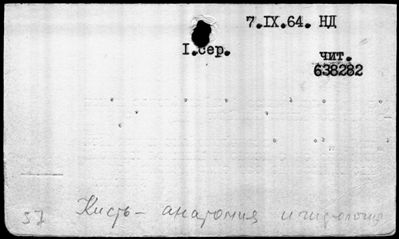 7.IX.64. НД
I.сер.
чит.
638282
37 Кисть – анатомия и гистология